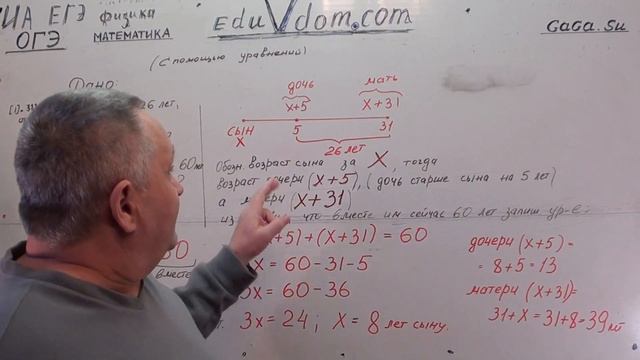 ИА ЕГЭ физика
ОГЭ МАТЕМАТИКА
EduVdom.com
GaGa.Su
(С помощью уравнений)
Дано:
26 лет,
60
дочь мать
x+5 x+31
сын 5 31
x
26 лет
Обозн. возраст сына за X, тогда
возраст дочери (x+5), (дочь старше сына на 5 лет)
(x+31)
что вместе им сейчас 60 лет запиш ур-е:
+5)+(x+31) = 60
x = 60-31-5
3x = 60-36
3x = 24; x = 8 лет сыну.
вместе
дочери (x+5) =
= 8+5 = 13
матери (x+31)=
31+x = 31+8=39 лет